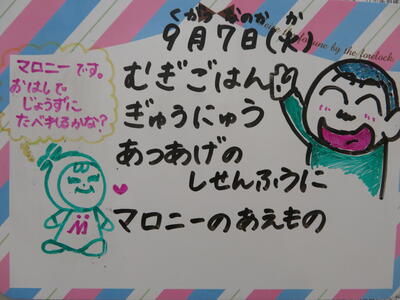 くがつ なのか か
9月7日(火)
マロニーです。
おはしで
じょうずに
たべれるかな?
むぎごはん
ぎゅうにゅう
あつあげの
しせんふうに
マロニーのあえもの
M
by the forelock